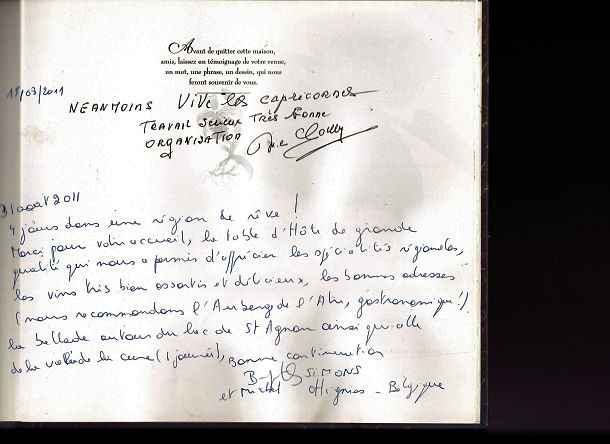 Avant de quitter cette maison,
amis, laissez un témoignage de votre venue,
un mot, une phrase, un dessin, qui nous
feront souvenir de vous.
15/03/2011
NEANMOINS VIVE les CAPRICORNES
TRAVAIL SERIEUX TRÈS BONNE
ORGANISATION
31 août 2011
4 jours dans une région de rêve !
Merci pour votre accueil, la table d'Hôte de grande
qualité qui nous a permis d'apprécier les spécialités régionales,
les vins très bien assortis et délicieux, les bonnes adresses
(nous recommandons l'Auberge de l'Atre, gastronomique !)
la ballade autour du lac de St Agnan ainsi que celle
de la vallée de la cure (1 journée), Bonne continuation
SIMONS
et Michel Hignies - Belgique